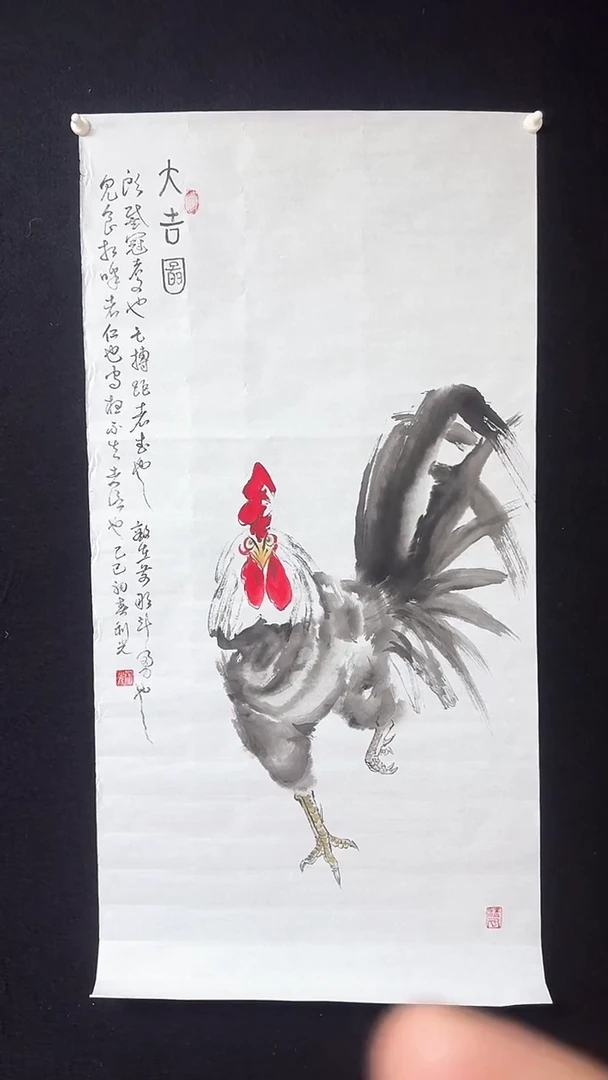 大吉圖
頭戴冠者文也足搏距者武也敵在前敢斗勇也
見食相呼者仁也守夜不失時信也乙巳初春利光